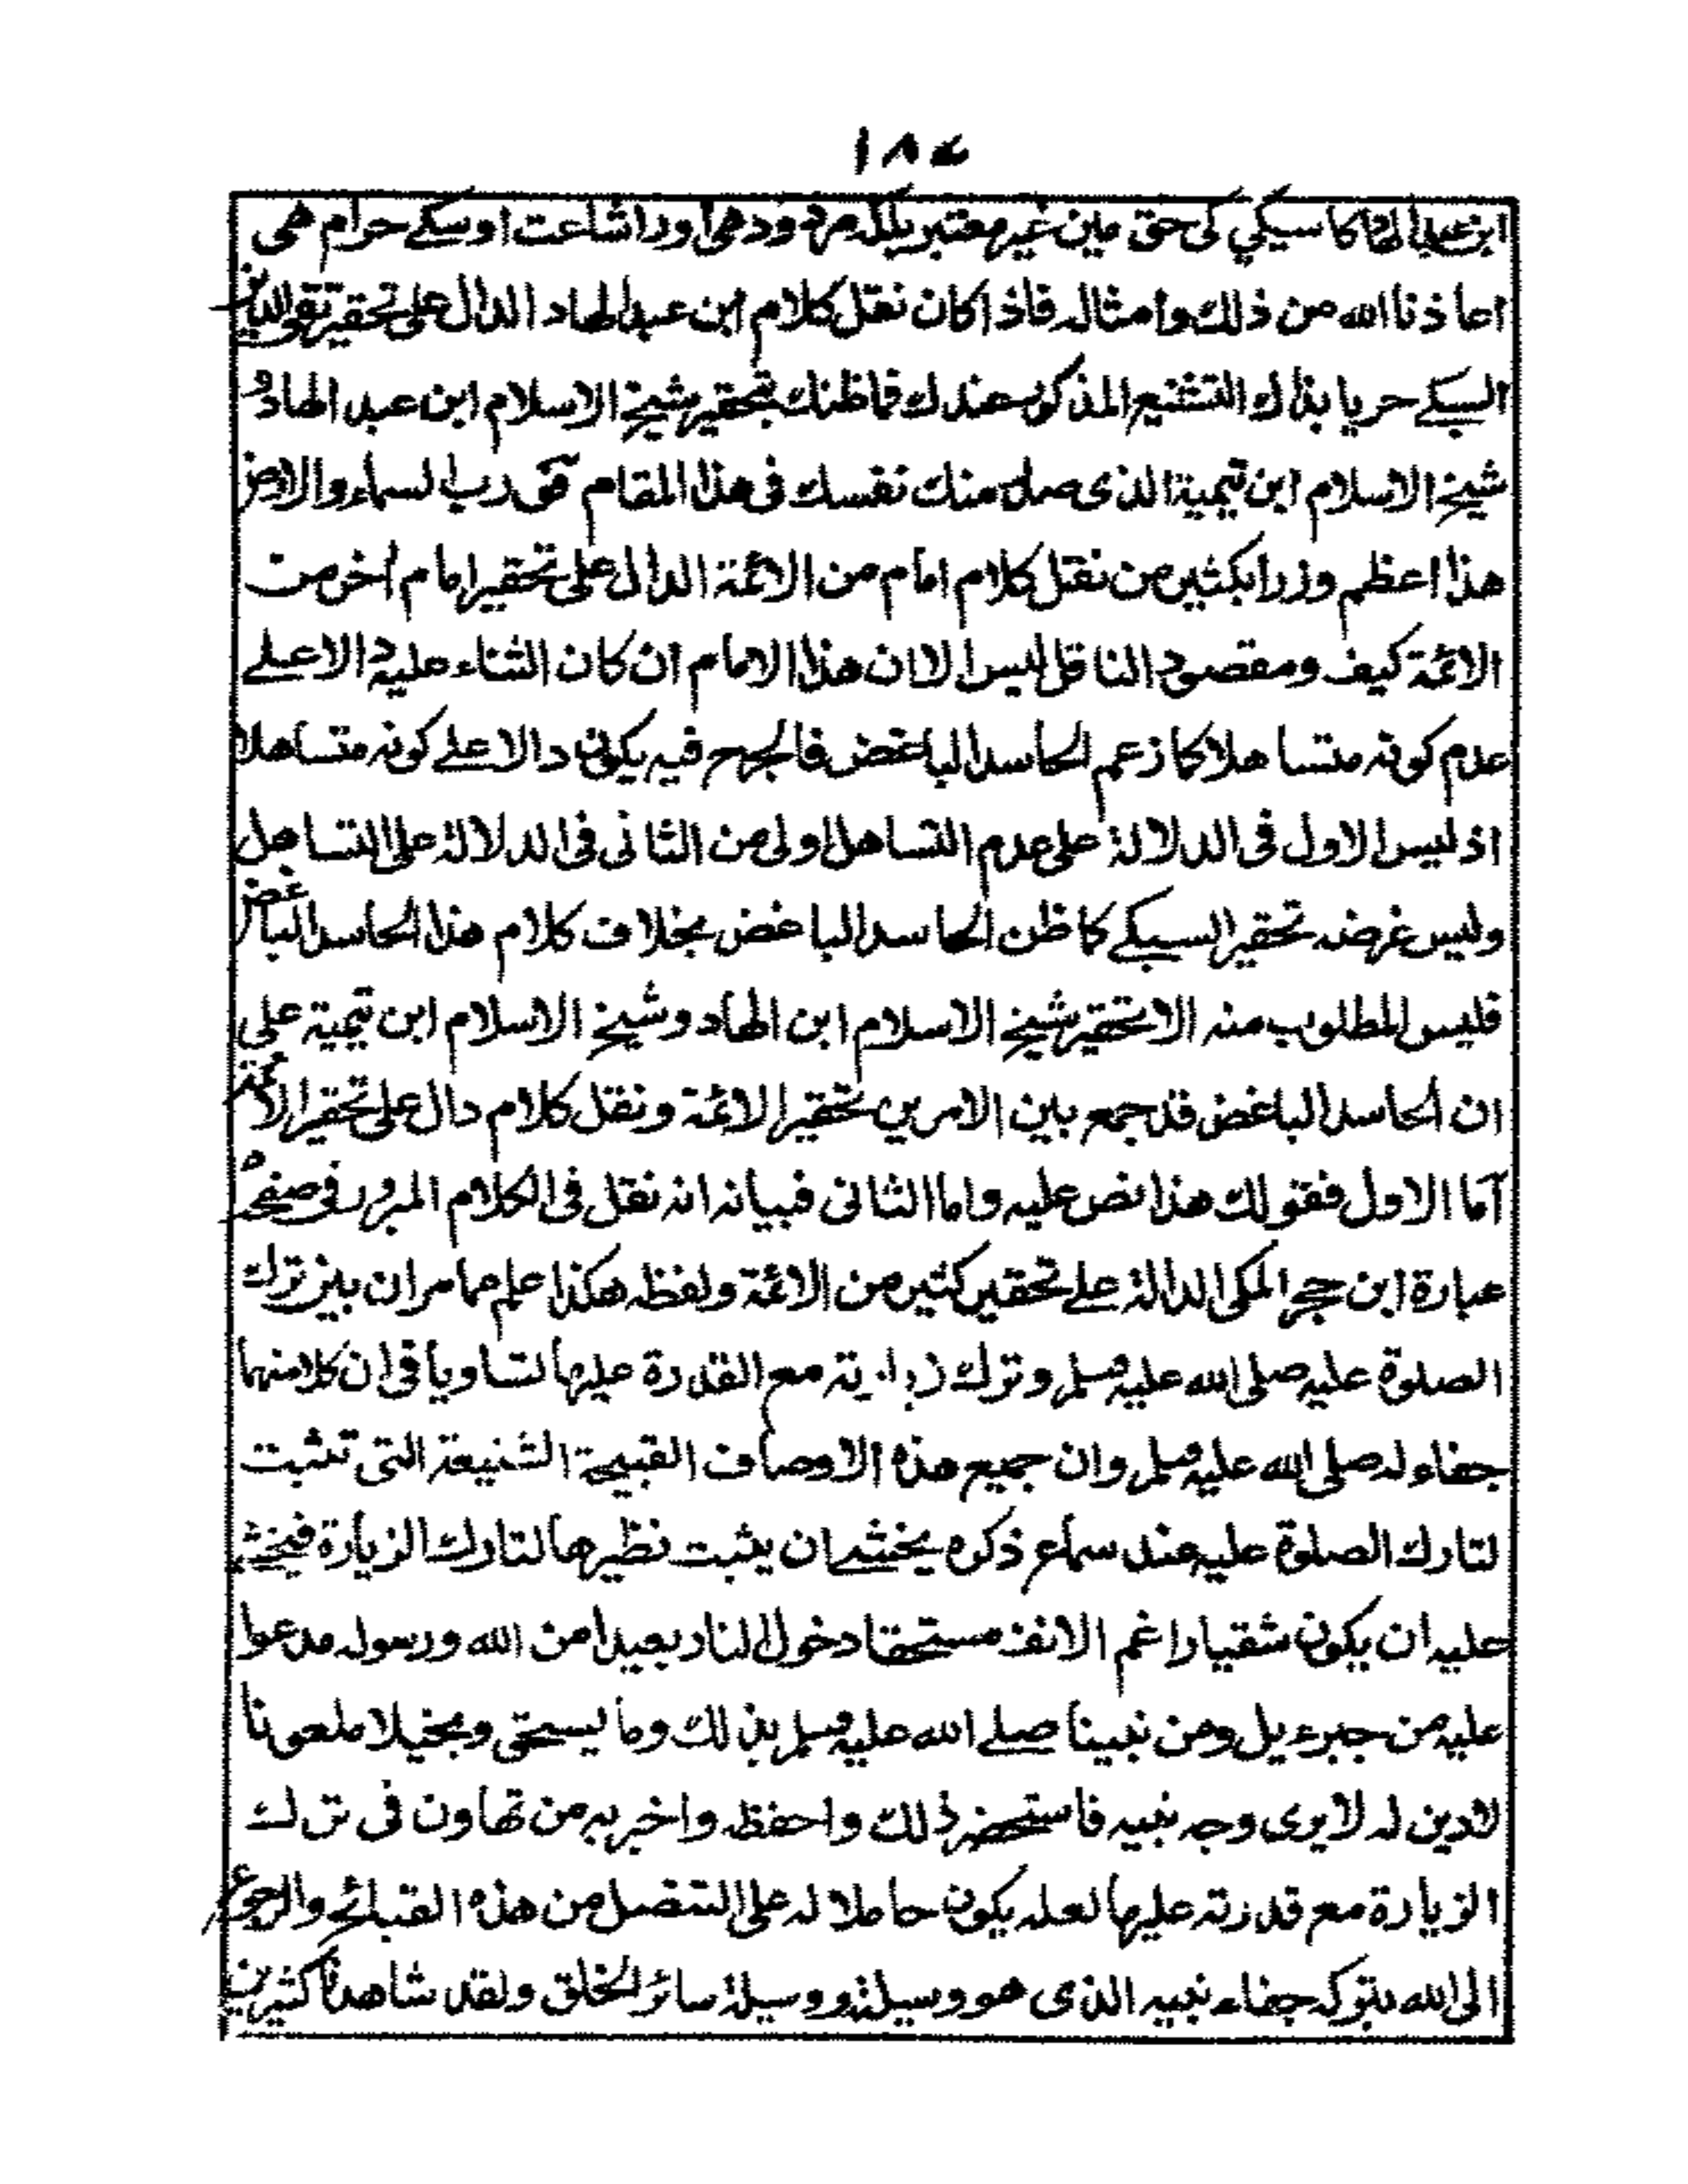 ١٨٤
ابن عبد الهاد کا سبکي کی حق مین غیر معتبر بلکہ مردود ھی اور اشاعت اوسکے حرام ھی
اعاذنا الله من ذلك وامثاله فاذا كان نقل كلام ابن عبد الهاد الدال على تحقير تقي الدين
السبكے حريا بذاك التشنيع المذكور عندك فما ظنك بتحقير شيخ الاسلام ابن عبد الهاد و
شيخ الاسلام ابن تيمية الذى صدر منك نفسك فى هذا المقام فو رب السماء والارض
هذا اعظم وزرا بكثير من نقل كلام امام من الائمة الدال على تحقير امام اخر من
الائمة كيف ومقصود الناقل ليس الا ان هذا الامام ان كان الثناء عليه دالا علے
عدم كونه متساهلا كما زعم الحاسد الباغض فالجرح فيه يكون دالا علے كونه متساهلا
اذ ليس الاول فى الدلالة على عدم التساهل اولى من الثانى فى الدلالة على التساهل
وليس غرضه تحقير السبكے كما ظن الحاسد الباغض بخلاف كلام هذا الحاسد الباغض
فليس المطلوب منه الا تحقير شيخ الاسلام ابن الهاد وشيخ الاسلام ابن تيمية على
ان الحاسد الباغض قد جمع بين الامرين تحقير الائمة ونقل كلام دال على تحقير الائمة
آما الاول فقولك هذا نص عليه واما الثانى فبيانه انه نقل فى الكلام المبرور فى صفحہ
عبارة ابن حجر المكى الدالة علے تحقير كثير من الائمة ولفظه هكذا علم مما مر ان بين ترك
الصلوة عليه صلى الله عليه وسلم وترك زيارته مع القدرة عليها تساويا فى ان كلا منهما
جفاء له صلى الله عليه وسلم وان جميع هذه الاوصاف القبيحة الشنيعة التى تثبت
لتارك الصلوة عليه عند سماع ذكره يخشى ان يثبت نظيرها لتارك الزيارة فيخشى
عليه ان يكون شقيا راغم الانف مستحقا دخول النار بعيدا من الله ورسوله مدعوا
عليه من جبرءيل ومن نبينا صلے الله عليه وسلم بذلك وما يستحق وبخيلا ملعونا
لا دين له لا يرى وجه نبيه فاستحضر ذلك واحفظه واخبر به من تهاون فى ترك
الزيارة مع قدرته عليها لعله يكون حاملا له على التنصل من هذه القبائح والرجوع
الى الله بتركه جفاء نبيه الذى هو وسيلته ووسيلة سائر الخلق ولقد شاهدنا كثيرين